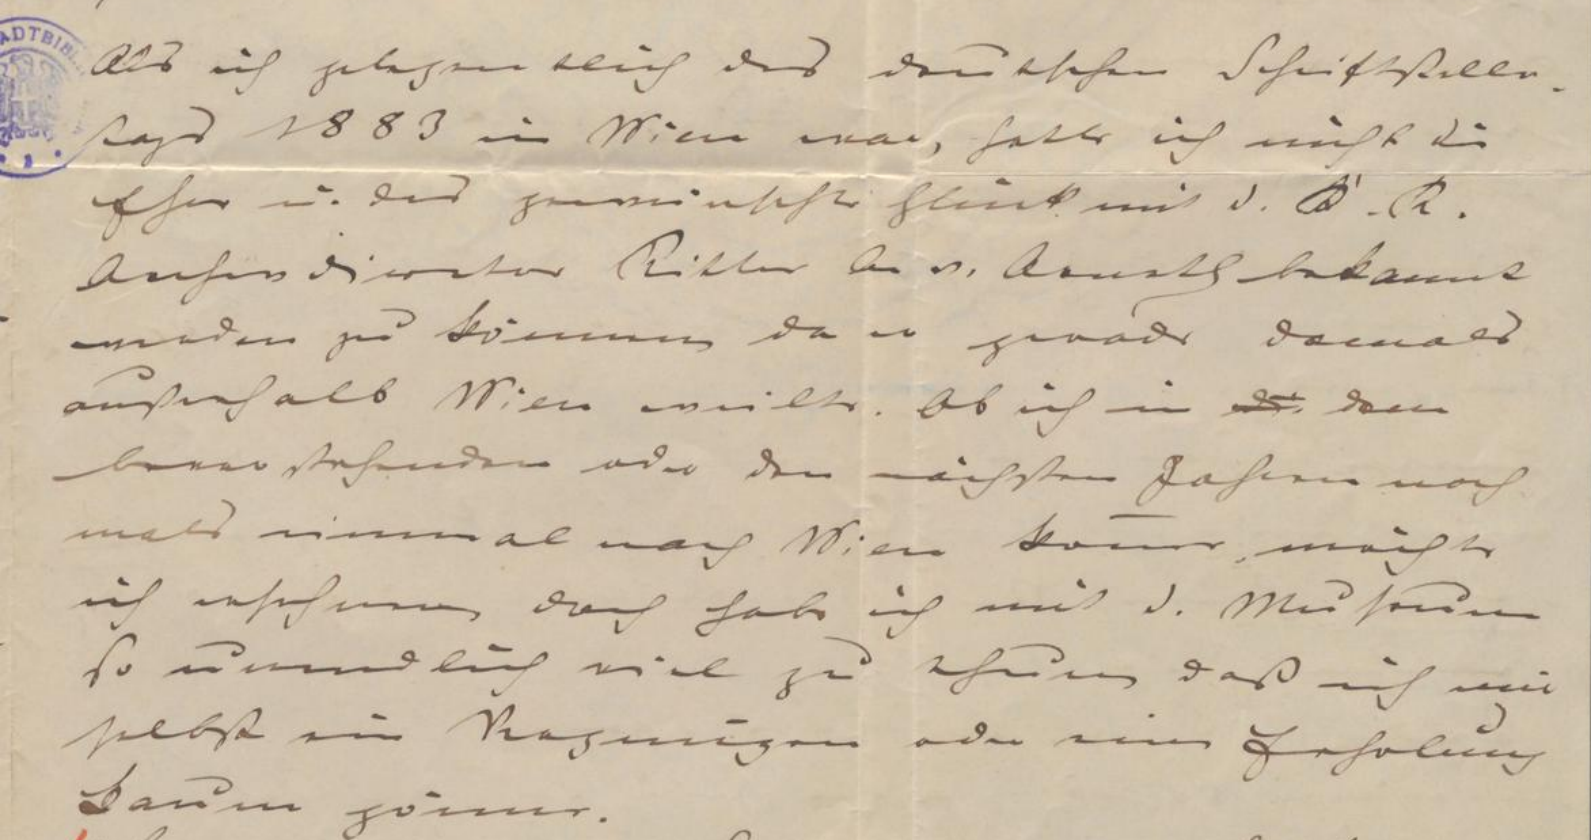 ADTBIB
Als ich gelegentlich des deutschen Schriftsteller-
tags 1883 in Wien war, hatte ich nicht die
Ehre u. das gewünschte Glück mit d. K. K.
Archivdirector Ritter A. v. Arneth bekannt
werden zu können da er gerade damals
außerhalb Wien weilte. Ob ich in dem
bevorstehenden oder den nächsten Jahren noch
mals einmal nach Wien komme, möchte
ich ersehnen, doch habe ich mit d. Museum
so unendlich viel zu thun, daß ich mir
selbst ein Vergnügen oder eine Erholung
kaum gönne.